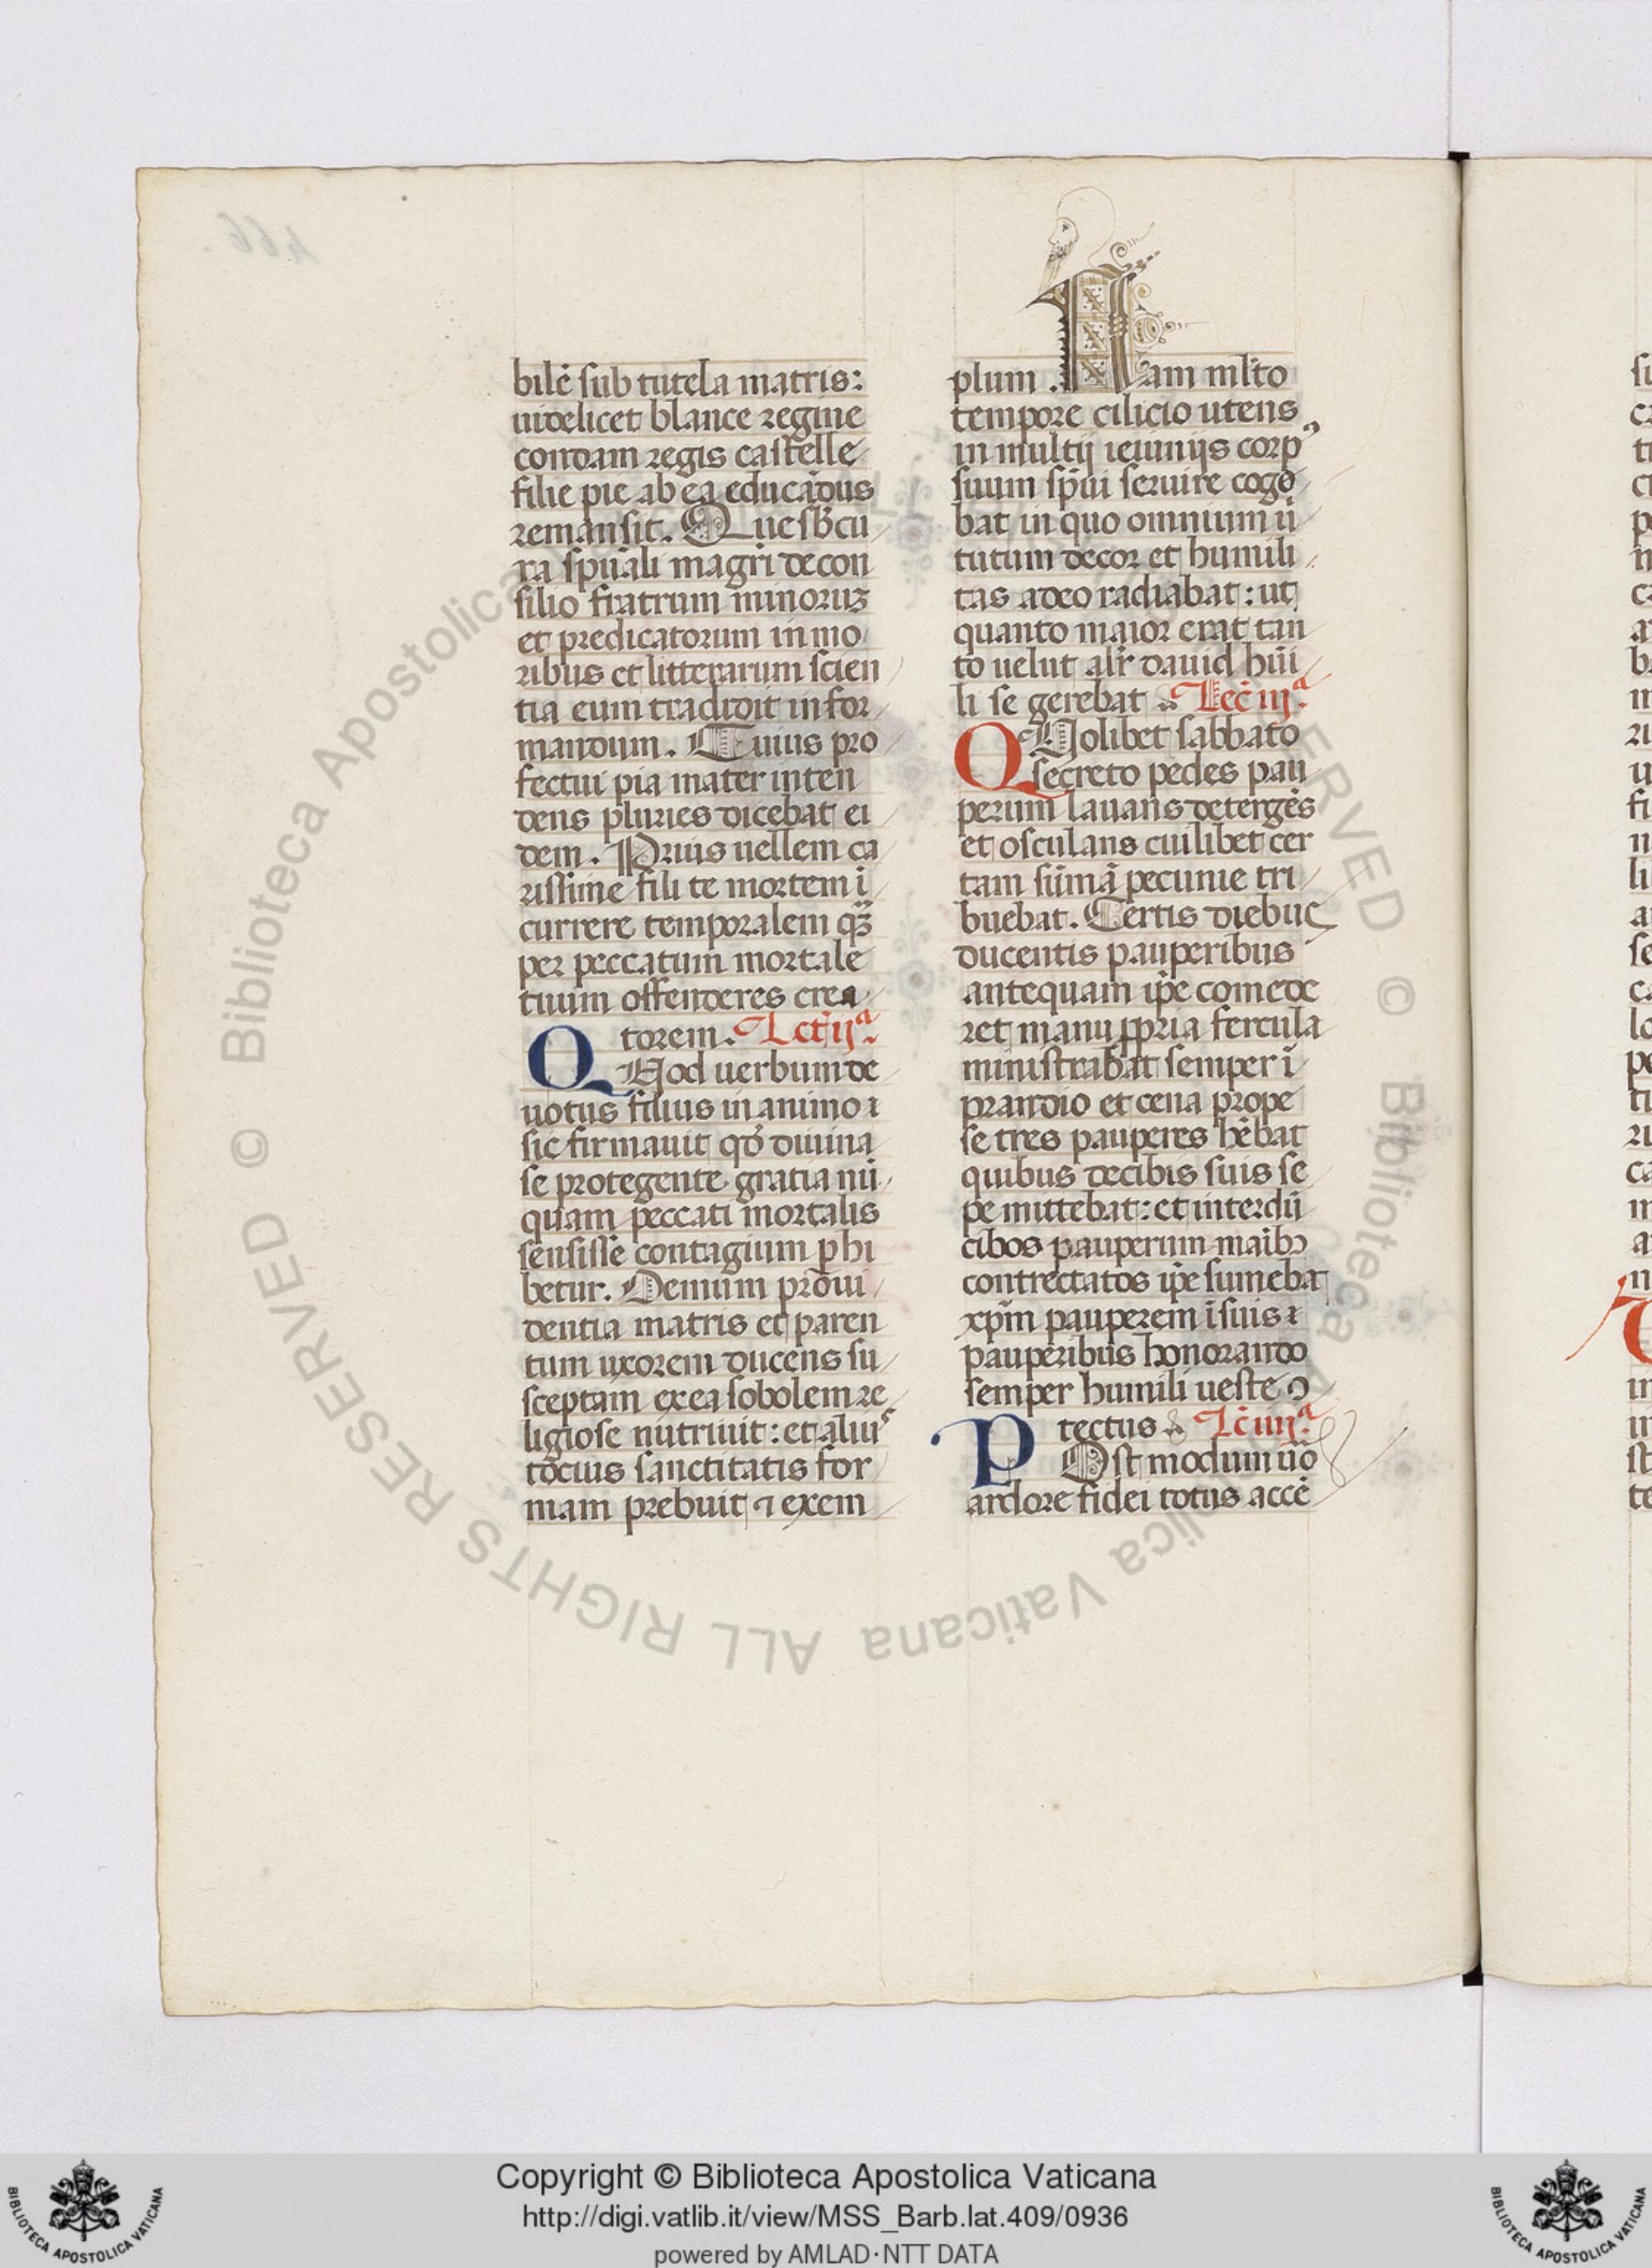 466.
bilē sub tutela matris:
uidelicet blance regine
condam regis castelle
filie pie ab ea educādus
remansit. Que sƀ cu
ra spūali magri̅ de con
silio fratrum minoruꝫ
et predicatorum in mo
ribus et litterarum scien
tia eum tradidit infor
mandum. Cuius pro
fectui pia mater inten
dens pluries dicebat ei
dem. Prius uellem ca
rissime fili te mortem ī
currere temporalem qꝫ̄
per peccatum mortale
tuum offenderes crea
torem. Lc̄t ijᵃ.
QUod uerbum de
uotus filius in animo ⁊
sic firmauit qđ diuina
se protegente gratia nū
quam peccati mortalis
sensisse contagium ꝑhi
betur. Demum prōui
dentia matris et paren
tum uxorem ducens su
sceptam ex ea sobolem re
ligiose nutriuit: et aliis
tocius sanctitatis for
mam prebuit ⁊ exem
plum. Nam ml̄to
tempore cilicio utens
in multij ieiunijs corpꝰ
suum sp̄ui seruire coge
bat in quo omnium ū
tutum decor et humili
tas adeo radiabat: ut
quanto maior erat tan
to uelut alr̄ dauid hūi
li se gerebat Lec̄ iijᵃ.
QUolibet sabbato
secreto pedes pau
perum lauans detergēs
et osculans cuilibet cer
tam sūmā pecunie tri
buebat. Certis diebus
ducentis pauperibus
antequam ip̄e comede
ret manu ꝓpria fercula
ministrabat semper ī
prandio et cena prope
se tres pauperes hēbat
quibus de cibis suis se
pe mittebat: et interdū
cibos pauperum maībꝫ
contrectatos ip̄e sumebat
xp̄m pauperem ī suis ⁊
pauperibus honorando
semper humili ueste ꝯ
tectus Lc̄ iiijᵃ.
POst modum uō
ardore fidei totus accē
© Biblioteca Apostolica Vaticana ALL RIGHTS RESERVED
© Biblioteca Apostolica Vaticana ALL RIGHTS RESERVED
Copyright © Biblioteca Apostolica Vaticana
http://digi.vatlib.it/view/MSS_Barb.lat.409/0936
powered by AMLAD·NTT DATA
BIBLIOTECA APOSTOLICA VATICANA
BIBLIOTECA APOSTOLICA VATICANA